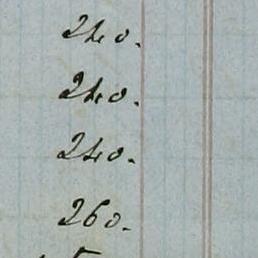 240.
240.
240.
260.